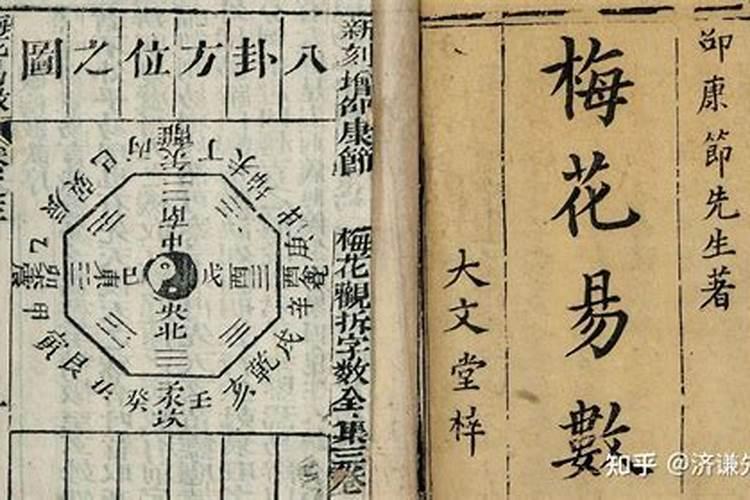 邵康節先生著
梅花易數
大文堂梓
新刻增邵康節 梅花觀拆字數全集三卷
八卦方位之圖
丙 離 丁
未 坤 申
酉
辛
戌 乾 亥
壬 子 坎 癸
丑 艮 寅
甲 卯 震 乙
辰 巽 巳
南
中
東 巳 戊 酉
央
北
知乎 @济谦先